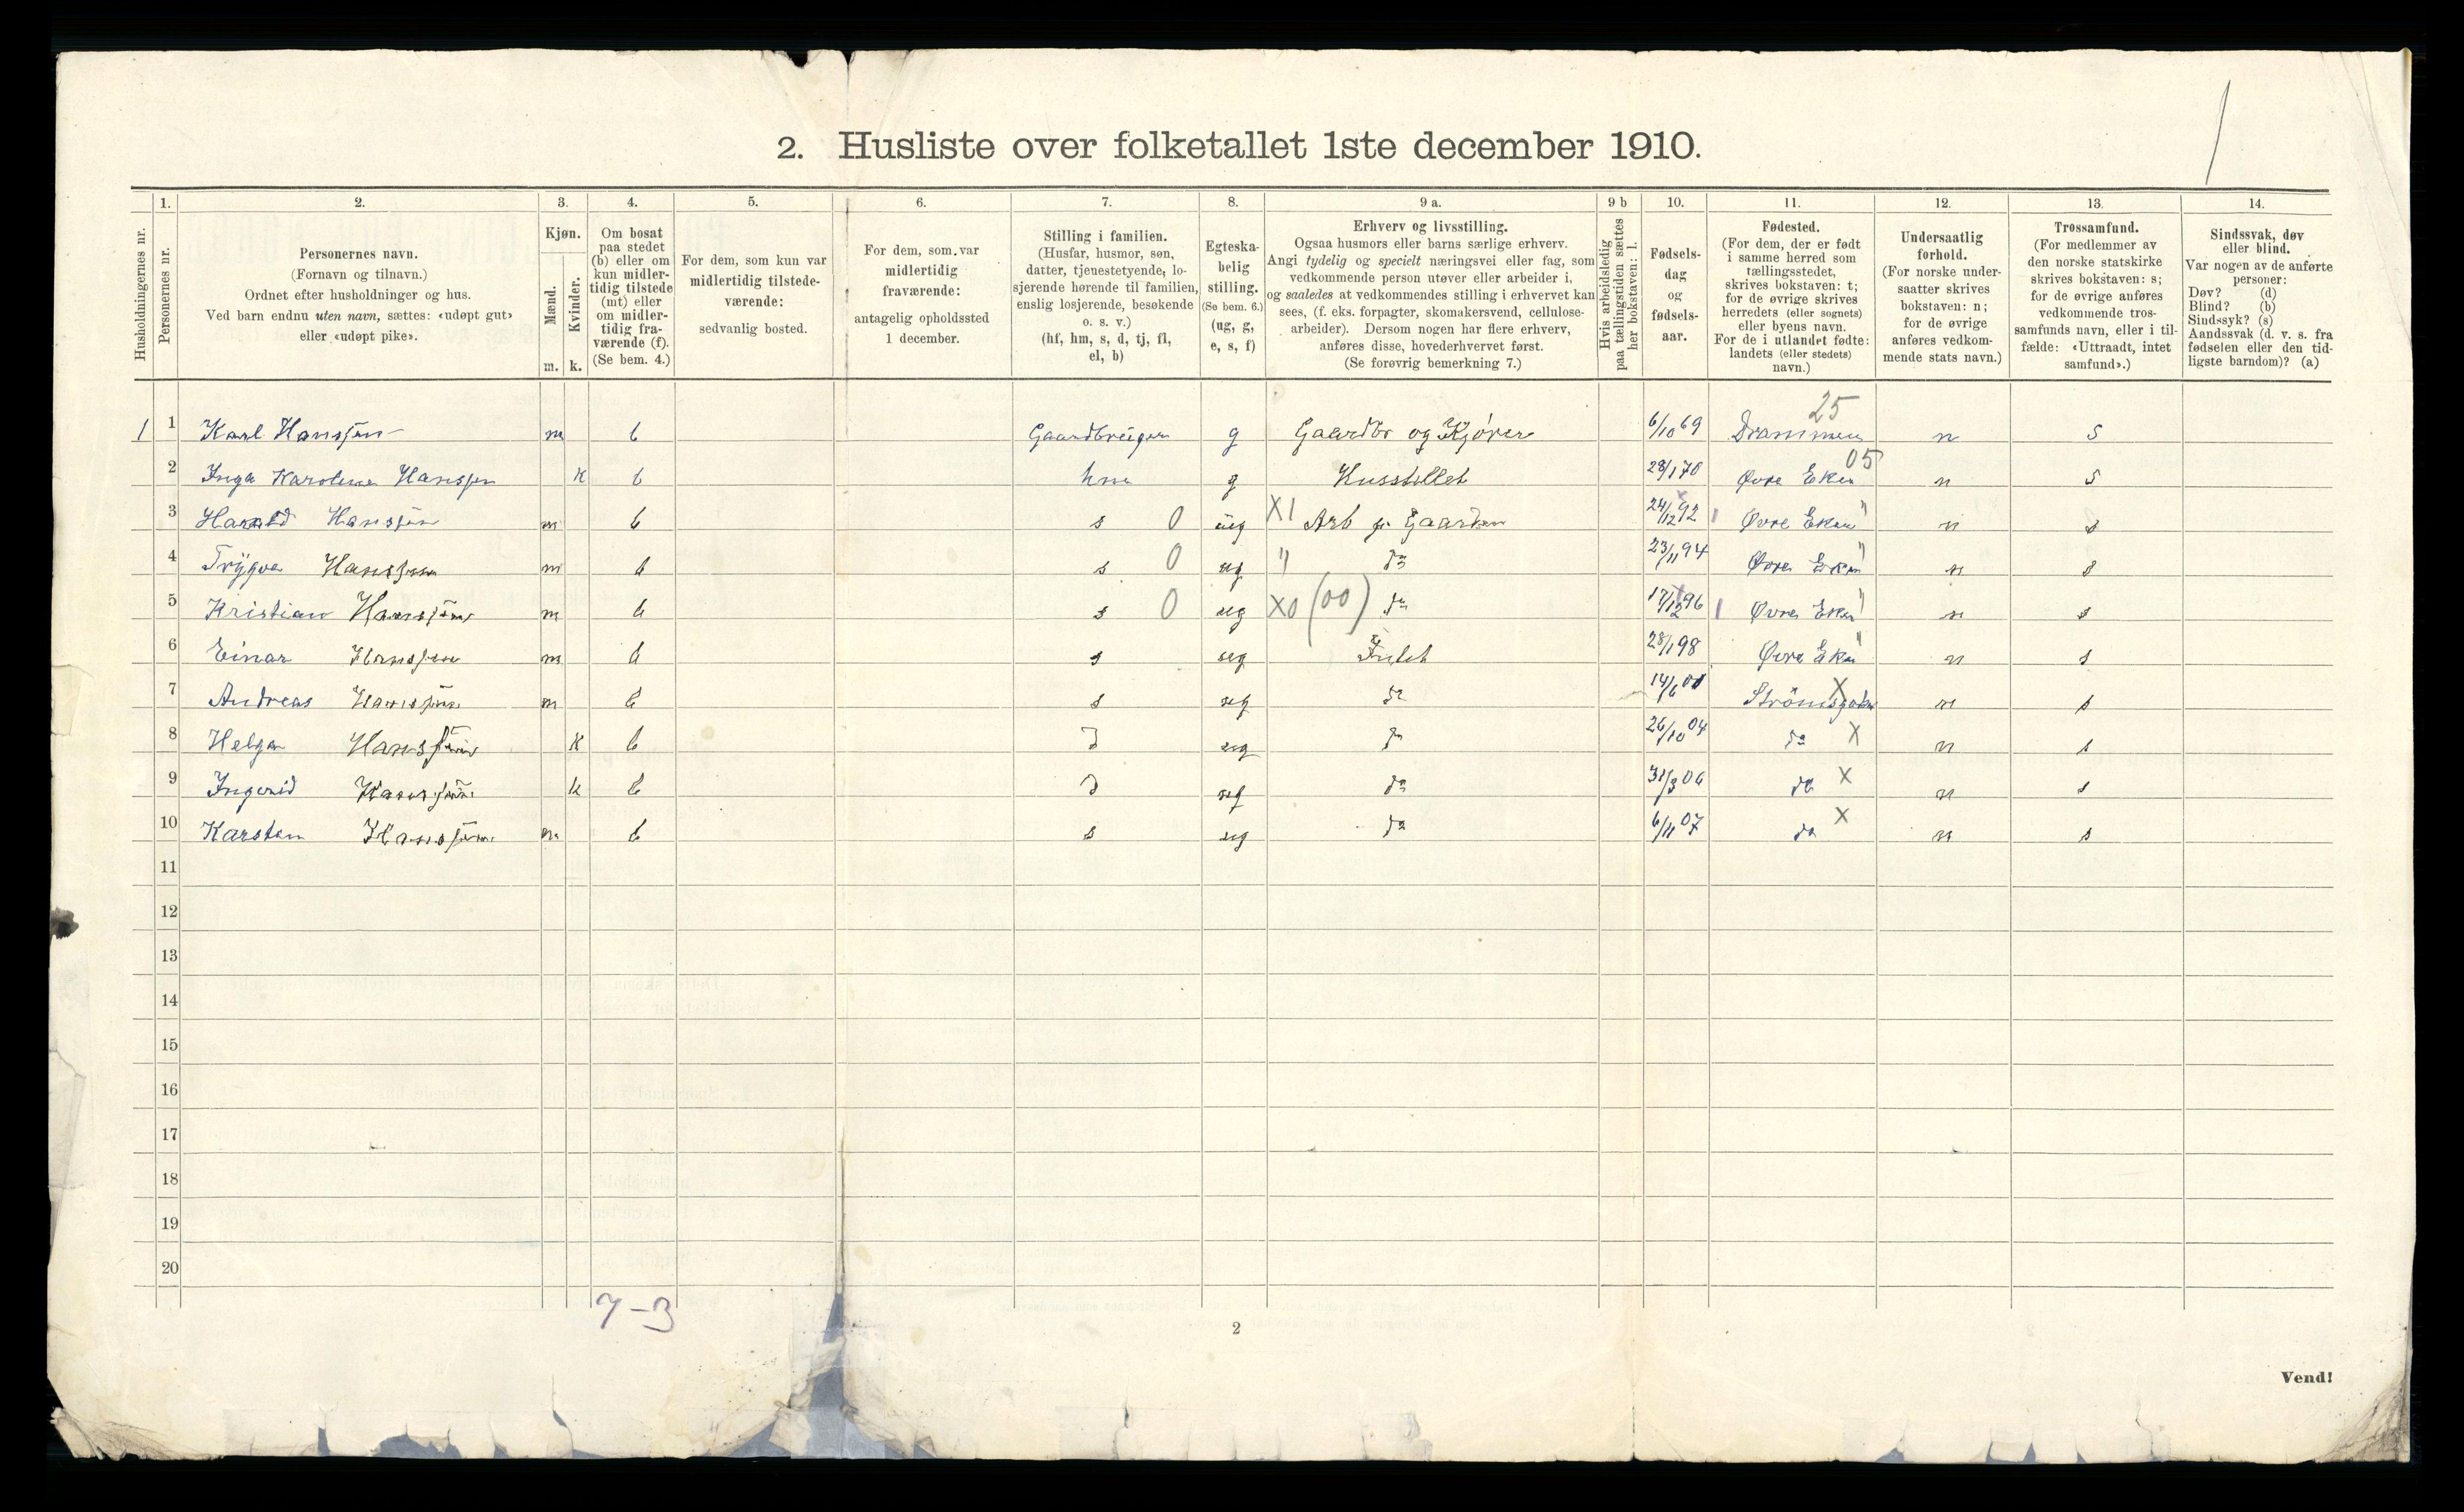 2. Husliste over folketallet 1ste december 1910.
Husholdningernes nr.
1.
Personernes nr.
2.
Personernes navn.
(Fornavn og tilnavn.)
Ordnet efter husholdninger og hus.
Ved barn endnu uten navn, sættes: «udøpt gut»
eller «udøpt pike».
3.
Kjøn.
Mænd.
Kvinder.
m. k.
4.
Om bosat
paa stedet
(b) eller om
kun midler-
tidig tilstede
(mt) eller
om midler-
tidig fra-
værende (f).
(Se bem. 4.)
5.
For dem, som kun var
midlertidig tilstede-
værende:
sedvanlig bosted.
6.
For dem, som var
midlertidig
fraværende:
antagelig opholdssted
1 december.
7.
Stilling i familien.
(Husfar, husmor, søn,
datter, tjenestetyende, lo-
sjerende hørende til familien,
enslig losjerende, besøkende
o. s. v.)
(hf, hm, s, d, tj, fl,
el, b)
8.
Egteska-
belig
stilling.
(Se bem. 6.)
(ug, g,
e, s, f)
9 a.
Erhverv og livsstilling.
Ogsaa husmors eller barns særlige erhverv.
Angi tydelig og specielt næringsvei eller fag, som
vedkommende person utøver eller arbeider i,
og saaledes at vedkommendes stilling i erhvervet kan
sees, (f. eks. forpagter, skomakersvend, cellulose-
arbeider). Dersom nogen har flere erhverv,
anføres disse, hovederhvervet først.
(Se forøvrig bemerkning 7.)
9 b
Hvis arbeidsledig
paa tællingstiden sættes
her bokstaven: l.
10.
Fødsels-
dag
og
fødsels-
aar.
11.
Fødested.
(For dem, der er født
i samme herred som
tællingsstedet,
skrives bokstaven: t;
for de øvrige skrives
herredets (eller sognets)
eller byens navn.
For de i utlandet fødte:
landets (eller stedets)
navn.)
12.
Undersaatlig
forhold.
(For norske under-
saatter skrives
bokstaven: n;
for de øvrige
anføres vedkom-
mende stats navn.)
13.
Trossamfund.
(For medlemmer av
den norske statskirke
skrives bokstaven: s;
for de øvrige anføres
vedkommende tros-
samfunds navn, eller i til-
fælde: «Uttraadt, intet
samfund».)
14.
Sindssvak, døv
eller blind.
Var nogen av de anførte
personer:
Døv? (d)
Blind? (b)
Sindssyk? (s)
Aandssvak (d. v. s. fra
fødselen eller den tid-
ligste barndom)? (a)
25
1 1 Karl Hanssen m b g Gaardbr og Kjører 6/10 69 Drammen n s
05
2 Inga Karoline Hanssen k b hm g Husstellet 28/1 70 Øvre Eker n s
3 Harald Hanssen m b s 0 ug X1 Arb på Gaarden 24/12 92 Øvre Eker " n s
4 Trygve Hanssen m b s 0 ug " do 23/11 94 Øvre Eker " n s
5 Kristian Hanssen m b s 0 ug X0 (00) do 17/12 96 Øvre Eker " n s
6 Einar Hanssen m b s ug Intet 28/1 98 Øvre Eker " n s
7 Andreas Hanssen m b s ug do 14/6 01 X n s
8 Helga Hanssen k b d ug do 26/10 04 do X n s
9 Ingerid Hanssen k b d ug do 31/3 06 do X n s
10 Karsten Hanssen m b s ug do 6/11 07 do X n s
11
12
13
14
15
16
17
18
19
20
7-3
2
Vend!